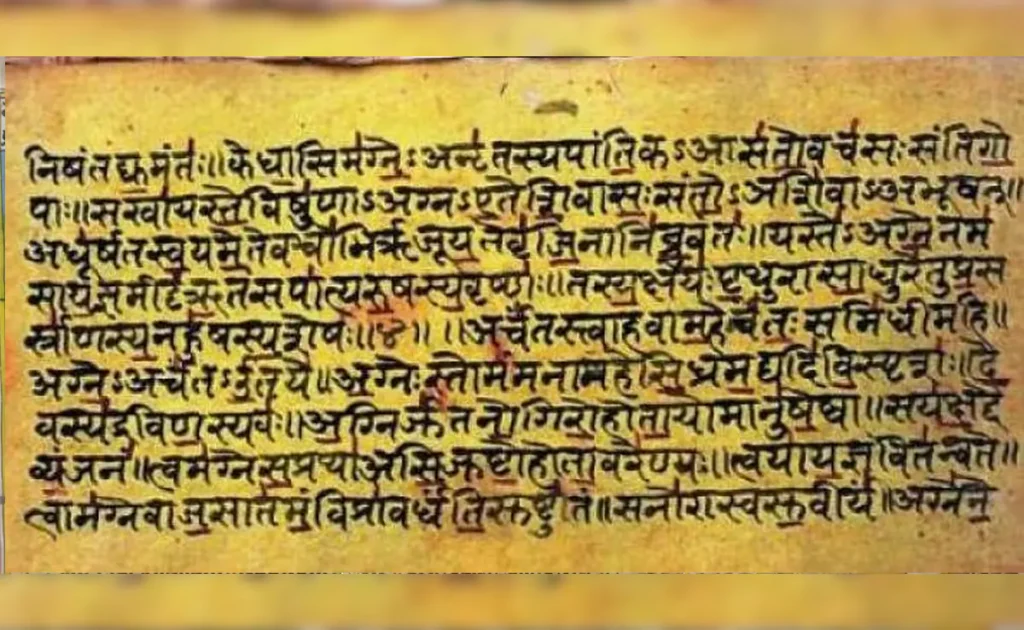 निषंतद्युमंतः॥केधासिमग्नेऽअनृतस्यपांतिकऽआसतोवचसःसंतिगो
पाः॥सखायस्तेविषुणाऽअग्नऽएतेशिवासःसंतोऽअशिवाऽअभूवन्॥
अधूर्षतस्वयमेतेवचोभिर्ऋजूयतेवृजिनानिब्रुवंतः॥यस्तेऽअग्नेनम
सायज्ञमीट्टऋतंसपात्यरुषस्यवृष्णः॥तस्यक्षयःपृथुरासाधुरेतुप्रस
र्स्राणस्यनहुषस्यशेषः॥४॥ ॥अर्चंतस्त्वाहवामहेर्चंतःसमिधीमहि॥
अग्नेऽअर्चंतऽऊतये॥अग्नेःस्तोमंमनामहेसिध्रमद्यदिविस्पृशः॥दे
वस्यद्रविणस्यवः॥अग्निर्जुषतनोगिरोहोतायोमानुषेष्वा॥सयक्षद्दै
व्यंजनं॥त्वमग्नेसप्रथाअसिजुष्टोहोतावरेण्यः॥त्वयायज्ञंवितन्वते॥
त्वामग्नेवाजसातमंविप्रावर्धंतिसुष्टुतं॥सनोरास्वसुवीर्यं॥अग्नेने